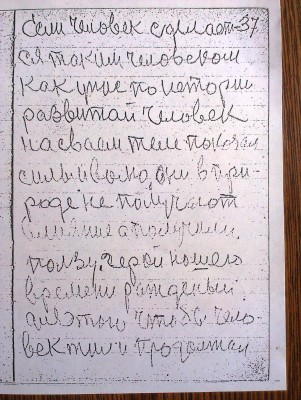 если человек сделает- 37
ся таким человеком
как умное по истории
развитой человек
на сваем теле показал
силы и волю, они в при-
роде не получают
влияние а получили
ползу. Герой нашего
времени рожденый
для этого чтобы чело-
век жил и продолжал